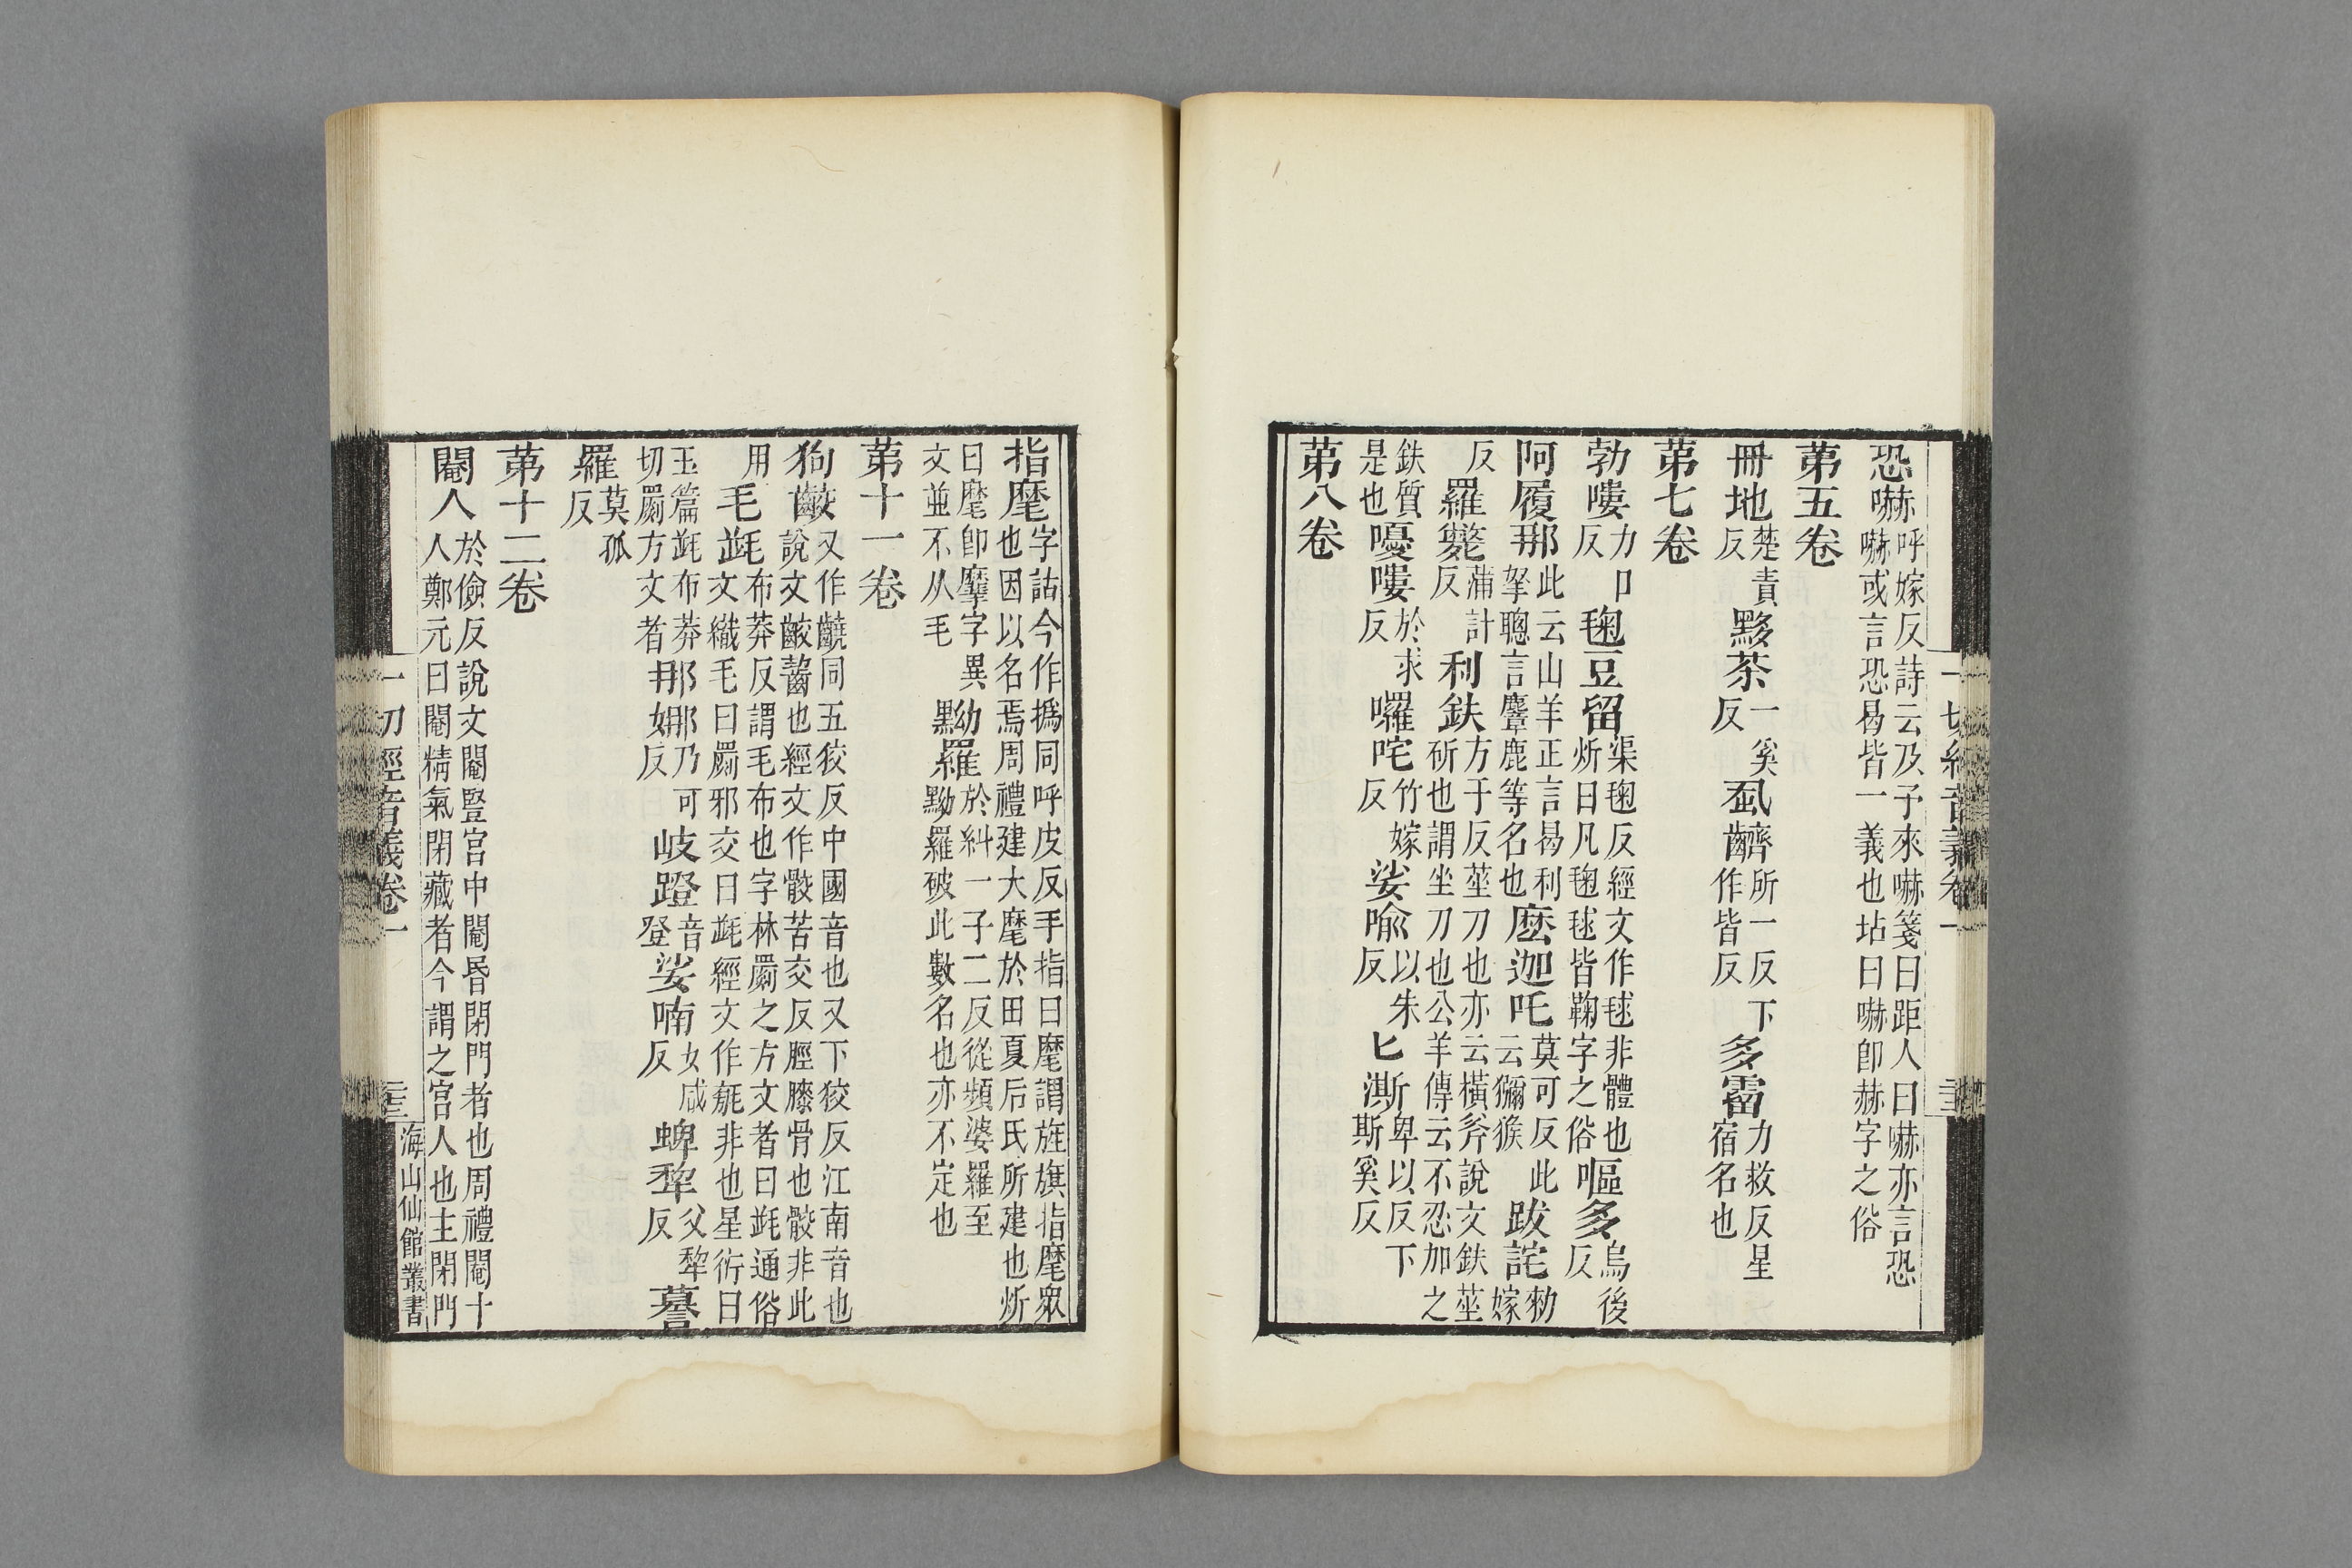 恐嚇呼嫁反詩云及予來嚇箋曰距人曰嚇亦言恐
嚇或言恐曷皆一義也坫曰嚇卽赫字之俗
第五卷
冊地楚責反黟茶一奚反
齏所一反下作皆反多霤力救反星宿名也
第七卷
勃嘍力口反毱豆留渠毱反經文作毬非體也
炘曰凡毱毬皆鞠字之俗嘔多烏後反
阿履那此云山羊正言曷利拏聰言麞鹿等名也麽迦吒莫可反此云獼猴跋詫勑嫁
反羅㡀蒲計反利鈇方于反莝刀也亦云橫斧說文鈇莝斫也謂坐刀也公羊傳云不忍加之
鈇質是也嚘嘍於求反囉咤竹嫁反娑喻以朱反匕澌卑以反下斯奚反
第八卷
一切經音義卷一
指麾字詁今作撝同呼皮反手指曰麾謂旌旗指麾眾
也因以名焉周禮建大麾於田夏后氏所建也炘
曰麾卽摩字異文並不从毛
黝羅於糾一子二反從頻婆羅至黝羅破此數名也亦不定也
第十一卷
狗齩又作齩同五狡反中國音也又下狡反江南音也
說文齩齧也經文作骹苦交反脛膝骨也骹非此
用毛㲝布莽反謂毛布也字林罽之方文者曰㲝通俗
文織毛曰罽邪交曰㲝經文作㲝非也星衍曰
玉篇㲝布莽切罽方文者
那乃可反岐蹬音登娑喃女咸反蜱犂父犂反摹
羅莫孤反
第十二卷
閹人於儉反說文閹豎宮中閹昏閉門者也周禮閹十
人鄭元曰閹精氣閉藏者今謂之宮人也主閉門
一切經音義卷一
海山仙館叢書